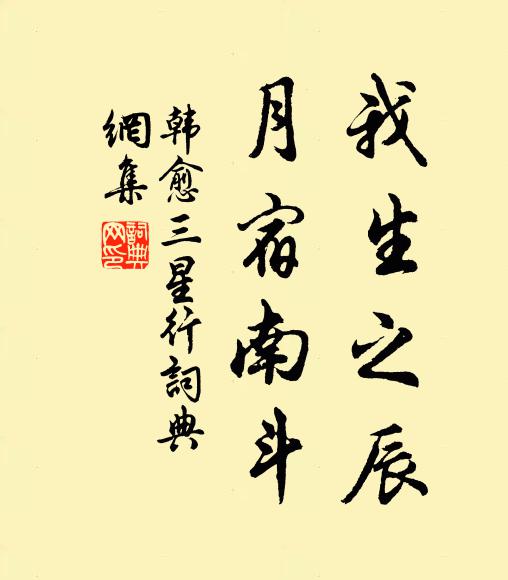 我生之辰
月宿南斗
韩愈三星行词典
網集
詞典網印